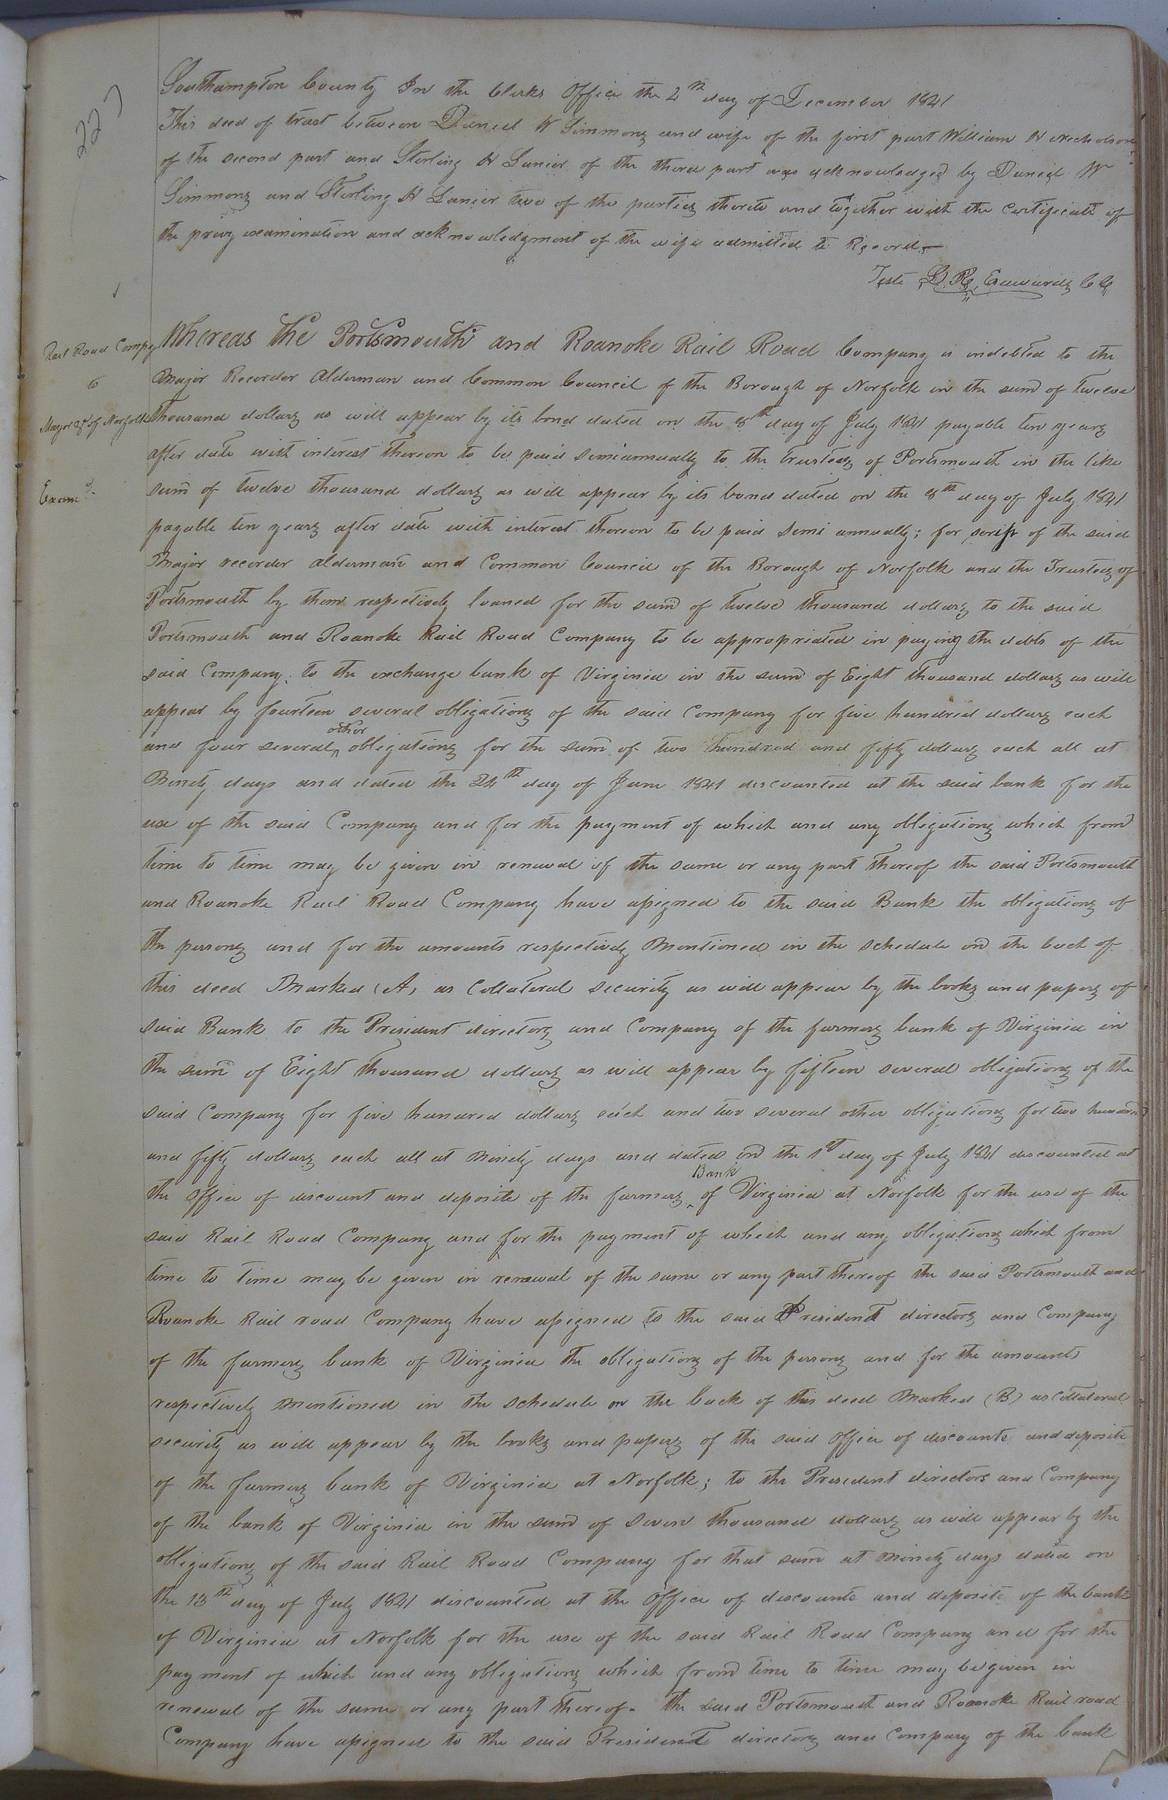 227
Southampton County In the Clerks Office the 2nd day of December 1841
This deed of trust between Daniel W Simmons and wife of the first part William H Nicholson
of the second part and Sterling H Lanier of the third part was acknowledged by Daniel W
Simmons and Sterling H Lanier two of the parties thereto and together with the Certificate of
the privy examination and acknowledgment of the wife admitted to Record
Teste L. R. Edwards CC
Rail Road Compy
to
Mayor &c of Norfolk
Examd.
Whereas the Portsmouth and Roanoke Rail Road Company is indebted to the
Major Recorder Alderman and Common Council of the Borough of Norfolk in the sum of twelve
thousand dollars as will appear by its bond dated on the 8th day of July 1841 payable ten years
after date with interest thereon to be paid semiannually to the Trustees of Portsmouth in the like
sum of twelve thousand dollars as will appear by its bond dated on the 8th day of July 1841
payable ten years after date with interest thereon to be paid semi annually; for scrip of the said
Major recorder alderman and Common Council of the Borough of Norfolk and the Trustees of
Portsmouth by them respectively loaned for the sum of twelve thousand dollars to the said
Portsmouth and Roanoke Rail Road Company to be appropriated in paying the debts of the
said Company. to the exchange bank of Virginia in the sum of Eight thousand dollars as will
appear by fourteen several obligations of the said Company for five hundred dollars each
and four several other obligations for the sum of two hundred and fifty dollars each all at
Ninety days and dated the 24th day of June 1841 discounted at the said bank for the
use of the said Company and for the payment of which and any obligations which from
time to time may be given in renewal of the same or any part thereof the said Portsmouth
and Roanoke Rail Road Company have assigned to the said Bank the obligations of
the persons and for the amounts respectively Mentioned in the schedule on the back of
this deed Marked (A) as Collateral security as will appear by the books and papers of
said Bank to the President directors and Company of the farmers bank of Virginia in
the sum of Eight thousand dollars as will appear by fifteen several obligations of the
said Company for five hundred dollars each and two several other obligations for two hundred
and fifty dollars each all at Ninety days and dated on the 1st day of July 1841 discounted at
the office of discount and deposite of the farmers Bank of Virginia at Norfolk for the use of the
said Rail Road Company and for the payment of which and any obligations which from
time to time may be given in renewal of the same or any part thereof the said Portsmouth and
Roanoke Rail road Company have assigned to the said President directors and Company
of the farmers bank of Virginia the obligations of the persons and for the amounts
respectively mentioned in the schedule on the back of this deed Marked (B) as Collateral
security as will appear by the books and papers of the said office of discounts and deposite
of the farmers bank of Virginia at Norfolk; to the President directors and Company
of the bank of Virginia in the sum of seven thousand dollars as will appear by the
obligations of the said Rail Road Company for that sum at Ninety days dated on
the 13th day of July 1841 discounted at the Office of discounts and deposite of the bank
of Virginia at Norfolk for the use of the said Rail Road Company and for the
payment of which and any obligations which from time to time may be given in
renewal of the same or any part thereof. the said Portsmouth and Roanoke Rail road
Company have assigned to the said President directors and Company of the bank